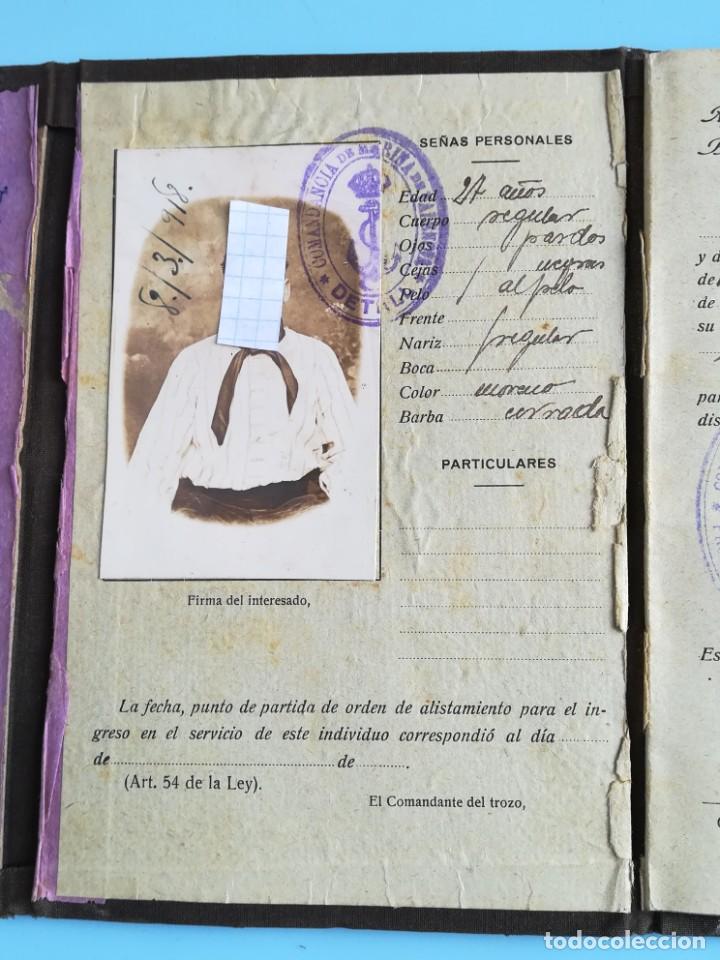 8./3./918.
COMANDANCIA DE MARINA DE
DETALL
SEÑAS PERSONALES
Edad 27 años
Cuerpo regular
Ojos pardos
Cejas
Pelo al pelo
Frente
Nariz regular
Boca
Color moreno
Barba cerrada
PARTICULARES
Firma del interesado,
La fecha, punto de partida de orden de alistamiento para el in-
greso en el servicio de este individuo correspondió al día
de de
(Art. 54 de la Ley).
El Comandante del trozo,
y d
de
de
su
par
dis
Es
todocoleccion
todocoleccion.net